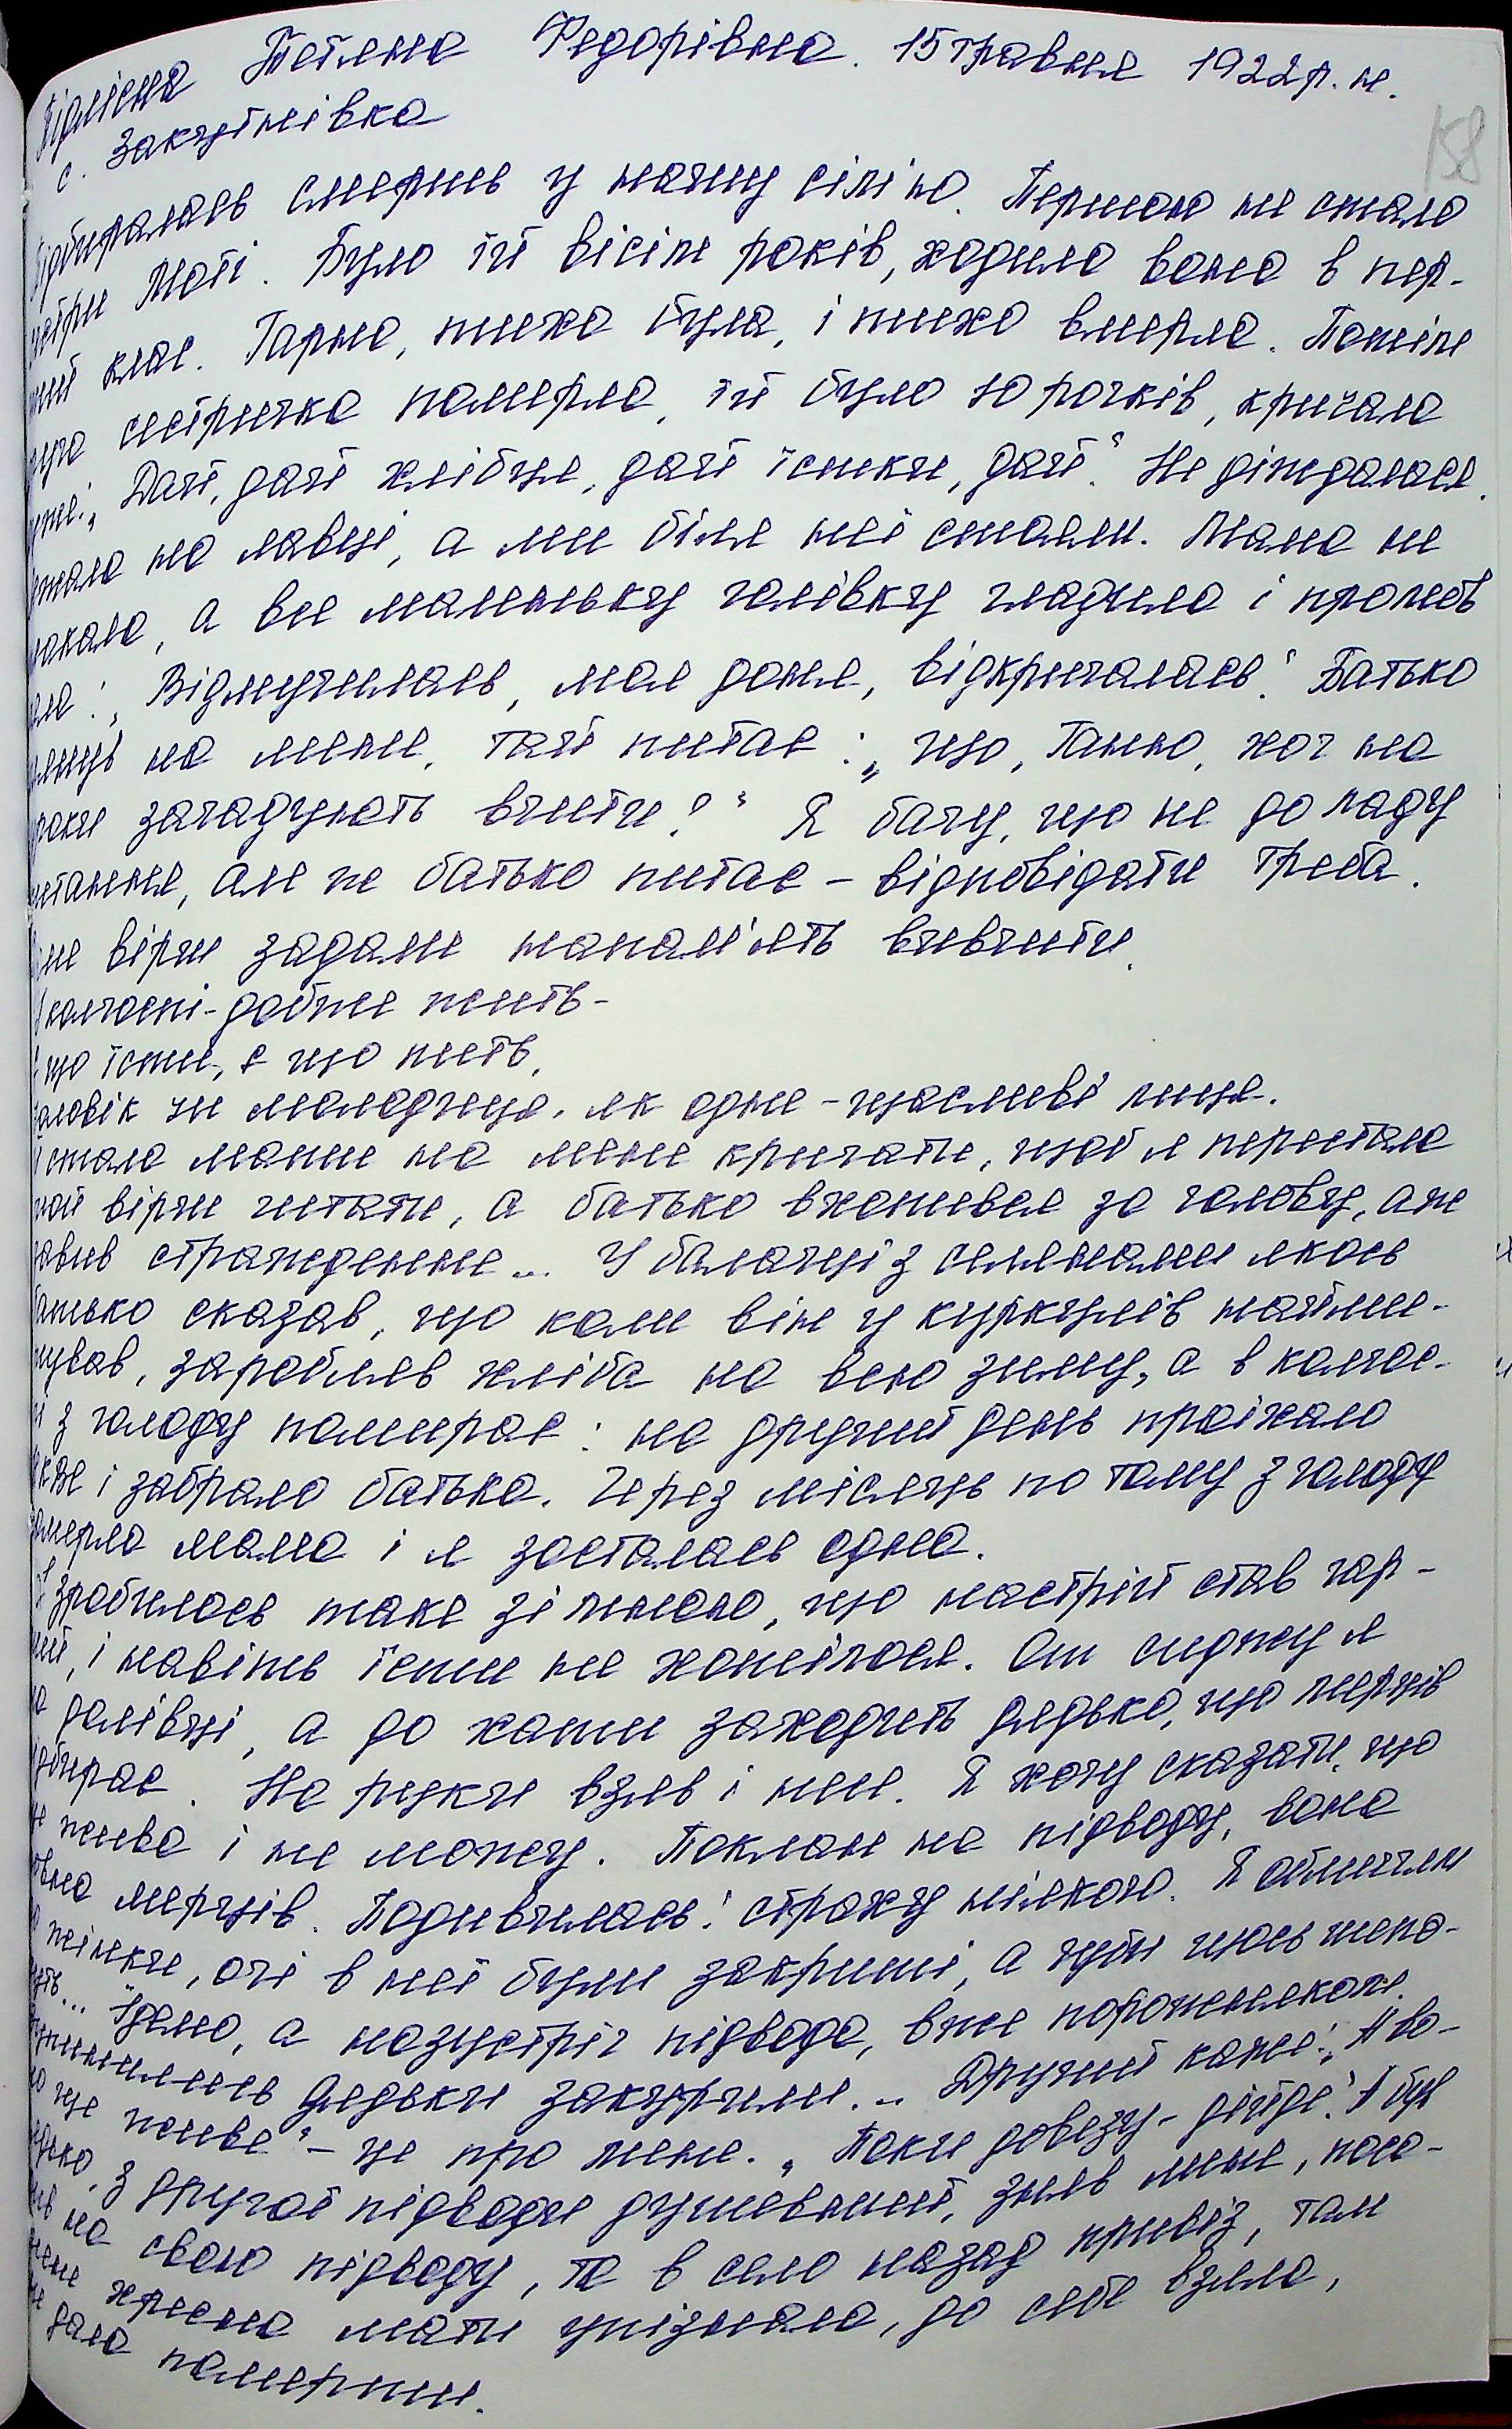 Тетяна Федорівна. 15 травня 1922 р. н.
с. Закутнівка
158
смерть у нашу сім'ю. Першою не стало
Моті. Було їй вісім років, ходила вона в пер-
клас. Гарна, тиха була, і тихо вмерла. Потім
сестричка померла, їй було 10 рочків, кричала
„Дай, дай хлібця, дай їстки, дай“. Не діждалася.
на лавці, а ми біля неї стали. Мама не
плакала, а все маленьку голівку гладила і промов
„Відмучилась, моя доня, відкричалась“. Батько
на мене, тай питає: „що, Танно, хоч на
уроки загадують вчити?“ Я бачу, що не до ладу
питання, але ж батько питає – відповідати треба.
вірш задали напам'ять вивчити.
У колгоспі - добже жить -
Є що їсти, є що пить,
чоловік чи молодиця, як одне - щасливі лиця.
стала мати на мене кричати, щоб я перестала
той вірш читати, а батько вхопився за голову, аж
страждання... У балачці з селянами якось
батько сказав, що коли він у куркулів найми-
тував, заробляв хліба на всю зиму, а в колгос-
пі з голоду помирає: на другий день проїхало
і забрало батька. Через місяць по тому з голоду
померла мама і я зосталась одна.
зробилось таке зі мною, що настрій став гар-
ний, і навіть їсти не хотілося. От сиджу я
на долівці, а до хати заходить дядько, що мерців
збирає. На руки взяв і несе. Я хочу сказати, що
жива і не можу. Поклав на підводу, вона
повна мерців. Подивилась: страху ніякого. Я обличчям
жінки, очі в неї були закриті, а губи щось шепо-
чуть... Їдемо, а назустріч підвода, вже порожняком.
Зупинились дядьки закурили... Другий каже: „А во-
на ще жива“ - це про мене. „Поки довезу - дійде“. А був
дядько з другої підводи душевний, зняв мене, поса-
див на свою підводу, та в село назад привіз, там
мене хресна мати упізнала, до себе взяла,
не дала померти.